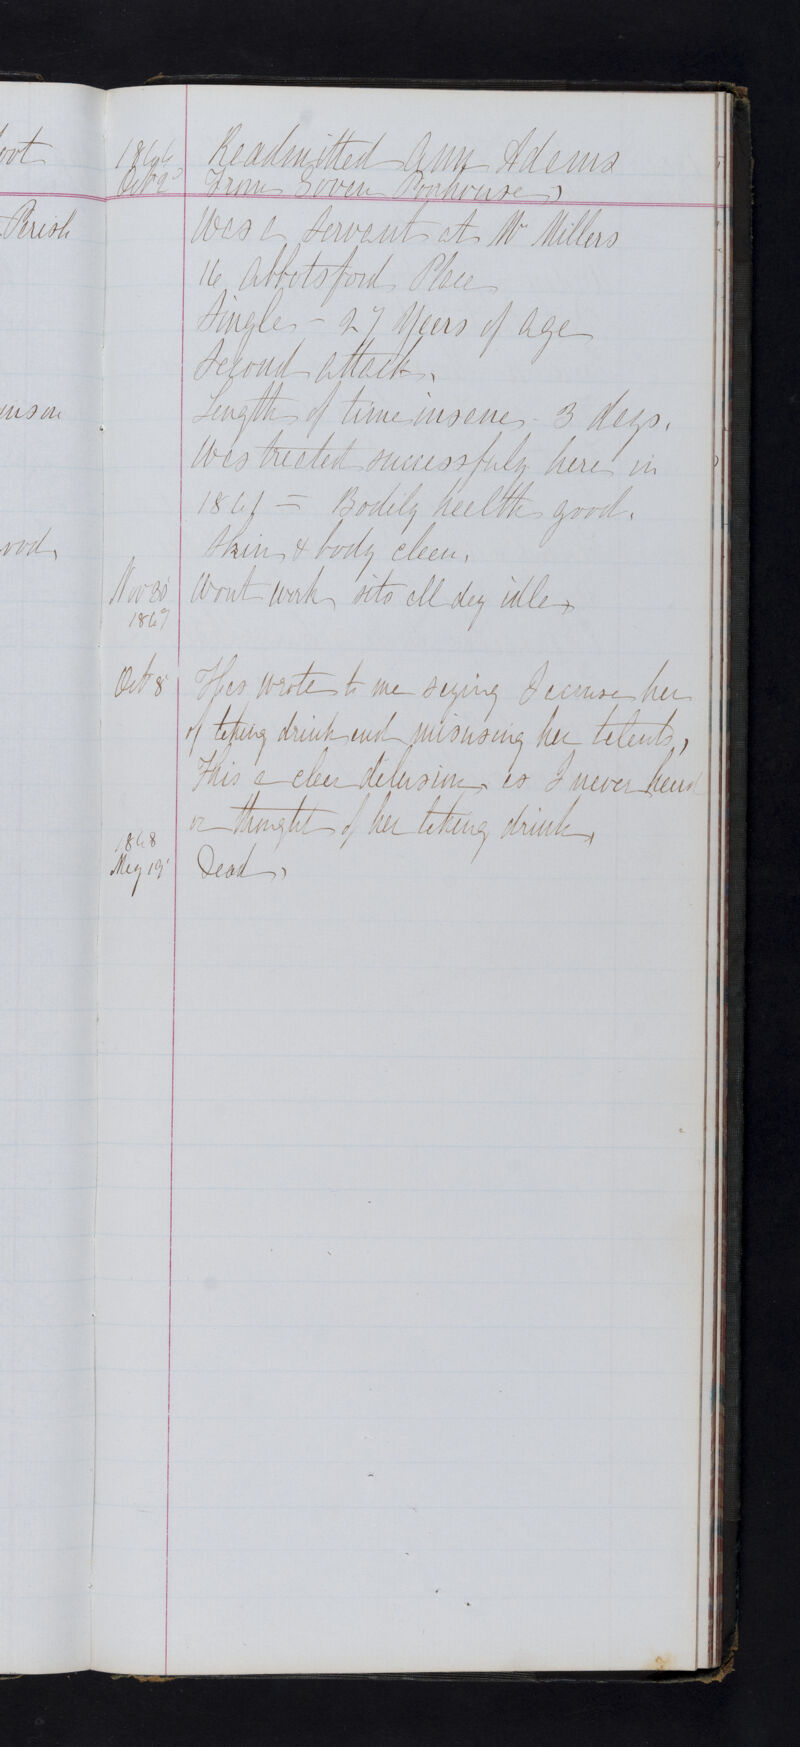 oot
Perish
inson
ood,
1866 Readmitted Ann Adams
Oct 2 From Govan Poorhouse,
Was a servant at Mr Millers
16 Abbotsford Place
Single - 27 Years of age
Second attack,
Length of time insane - 3 days,
Was treated successfully here in
1861 = Bodily health good,
Skin & body clean,
Nov 30 Wont work, sits all day idle,
1867
Oct 8 Has wrote to me saying I accuse her
of taking drink and misusing her talents,
This a clear delusion, as I never heard
or thought of her taking drink,
1868
May 19 Dead,